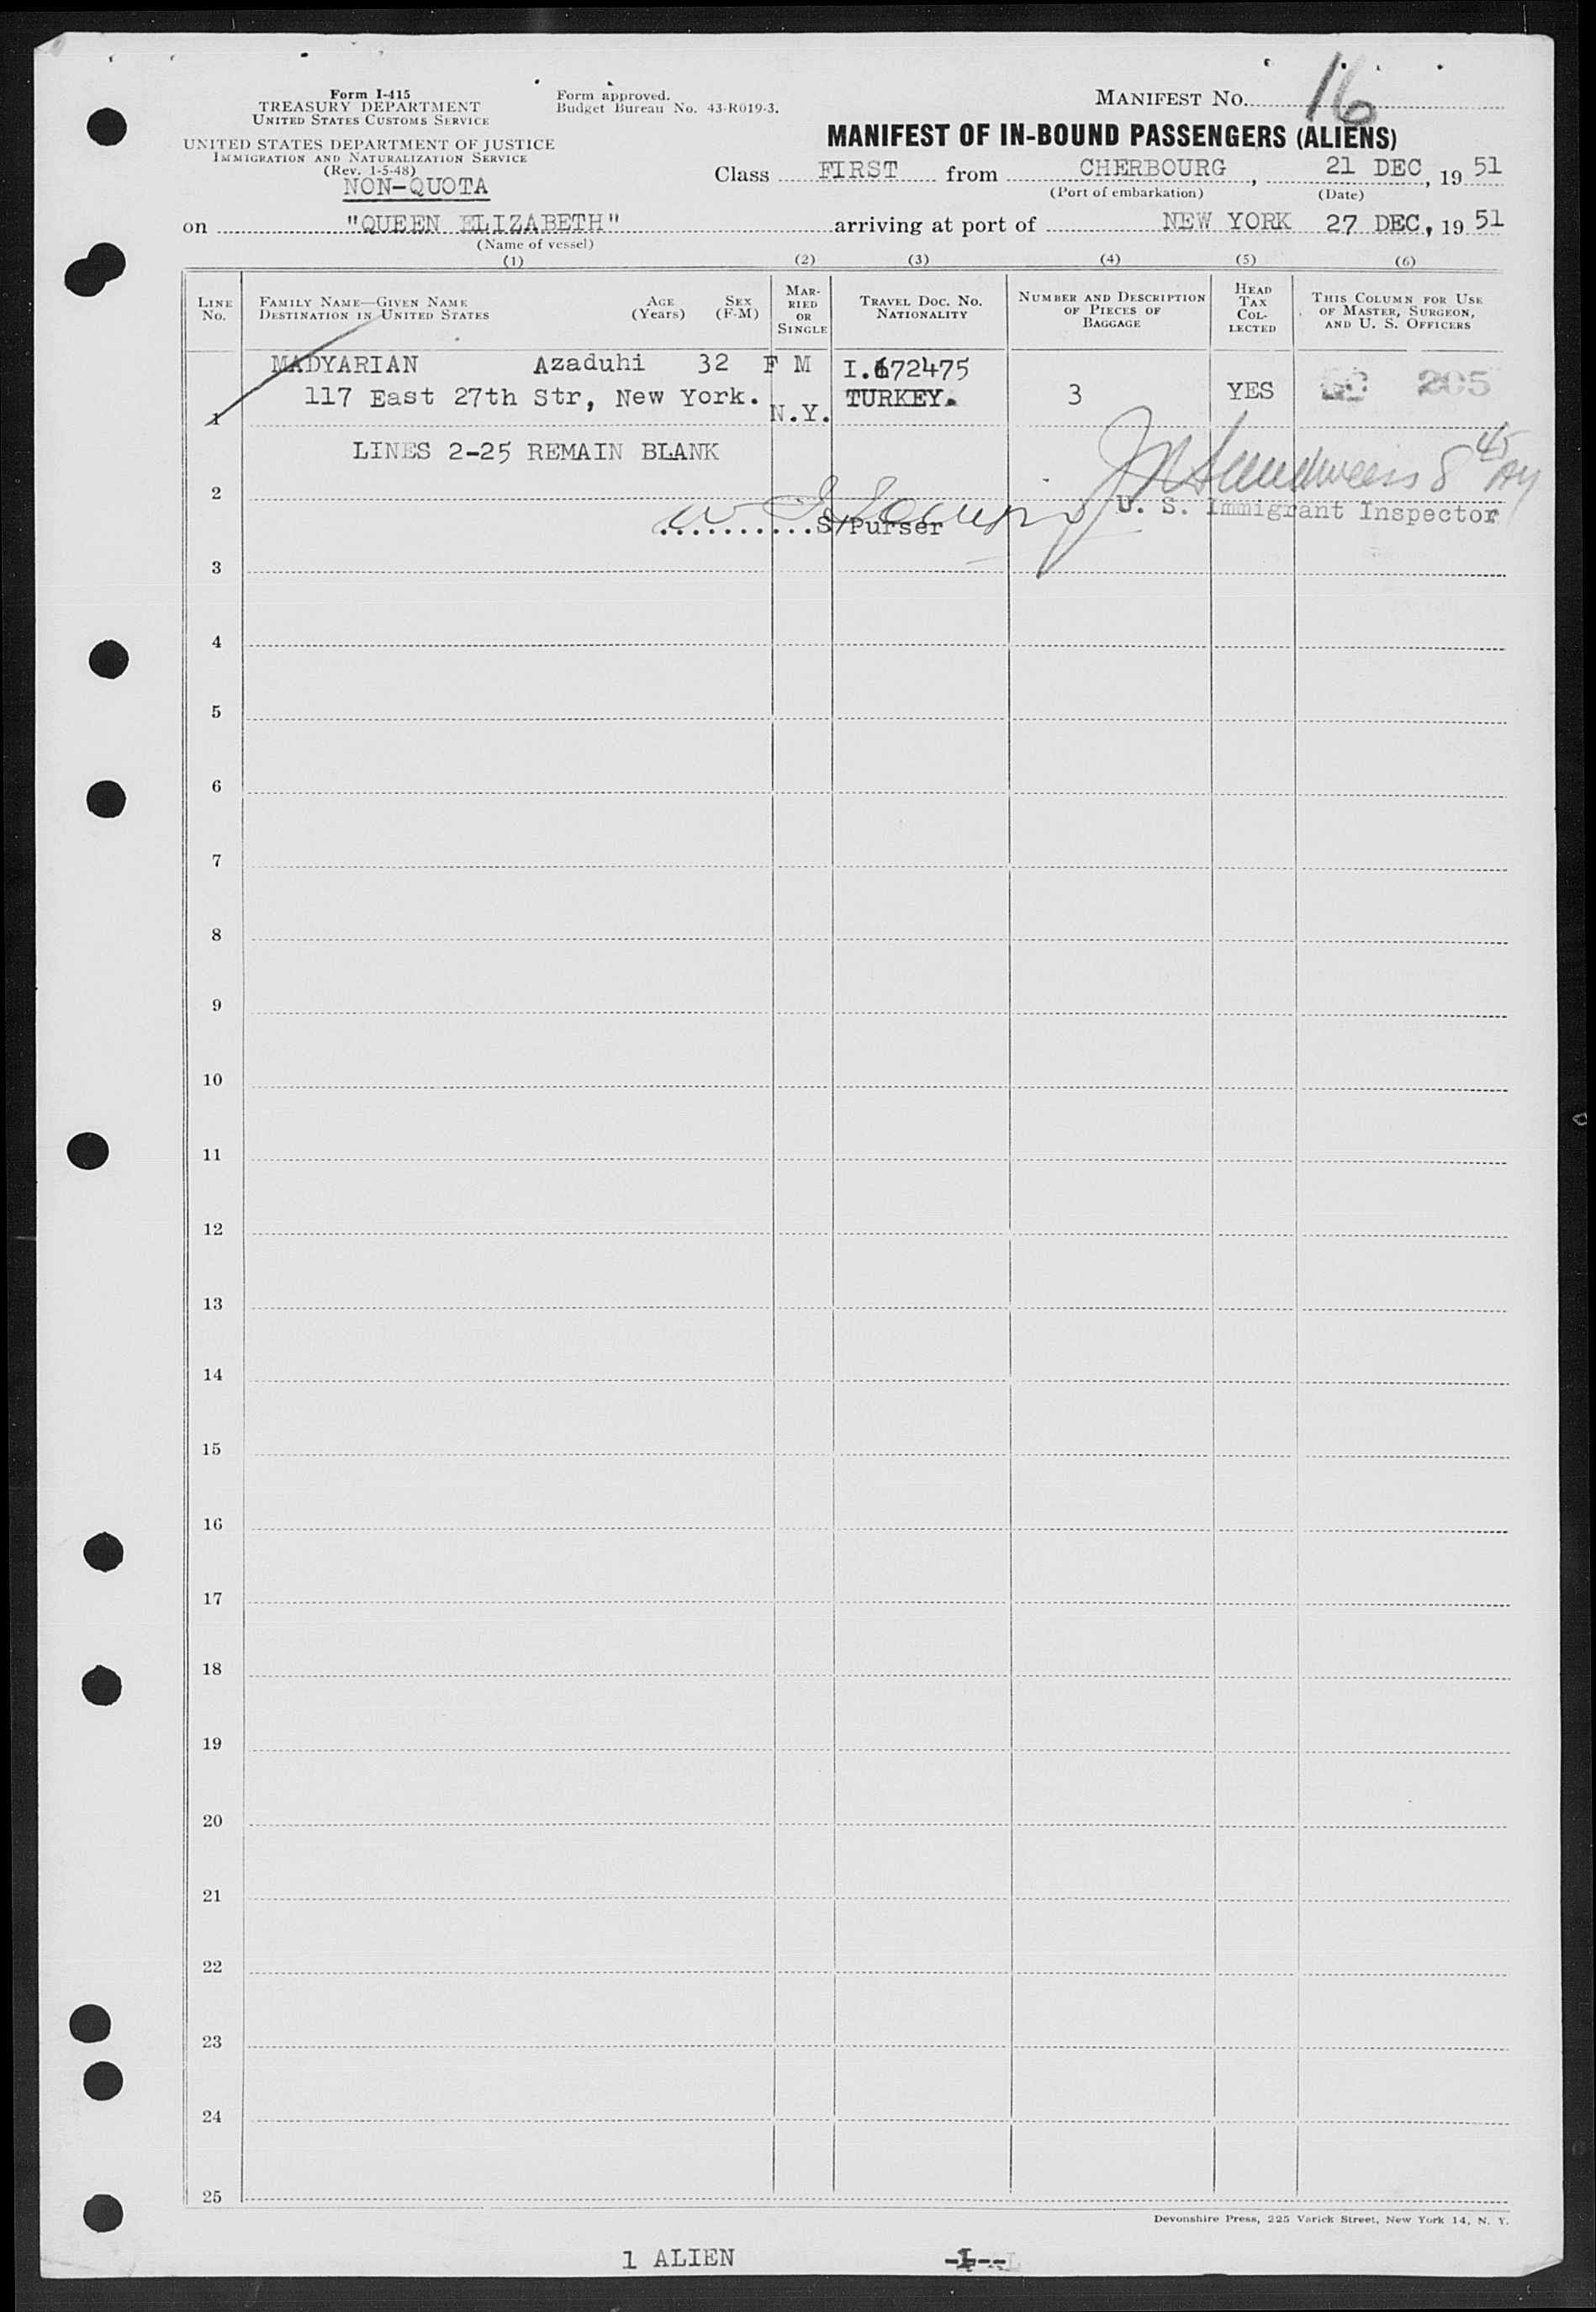 Form I-415
TREASURY DEPARTMENT
UNITED STATES CUSTOMS SERVICE
UNITED STATES DEPARTMENT OF JUSTICE
IMMIGRATION AND NATURALIZATION SERVICE
(Rev. 1-5-48)
NON-QUOTA
Form approved.
Budget Bureau No. 43-R019-3.
MANIFEST No. 16
MANIFEST OF IN-BOUND PASSENGERS (ALIENS)
Class FIRST from CHERBOURG, 21 DEC, 19 51
(Port of embarkation) (Date)
on "QUEEN ELIZABETH" arriving at port of NEW YORK 27 DEC, 19 51
(Name of vessel)
(1) (2) (3) (4) (5) (6)
LINE No.
FAMILY NAME—GIVEN NAME
DESTINATION IN UNITED STATES
AGE (Years)
SEX (F-M)
MARRIED OR SINGLE
TRAVEL DOC. NO.
NATIONALITY
NUMBER AND DESCRIPTION OF PIECES OF BAGGAGE
HEAD TAX COLLECTED
THIS COLUMN FOR USE OF MASTER, SURGEON, AND U. S. OFFICERS
MADYARIAN Azaduhi 32 F M I.672475
117 East 27th Str, New York. N.Y. TURKEY. 3 YES 205
1
LINES 2-25 REMAIN BLANK
8 45 AM
2
U. S. Immigrant Inspector
..........S/Purser
3
4
5
6
7
8
9
10
11
12
13
14
15
16
17
18
19
20
21
22
23
24
25
Devonshire Press, 225 Varick Street, New York 14, N. Y.
1 ALIEN